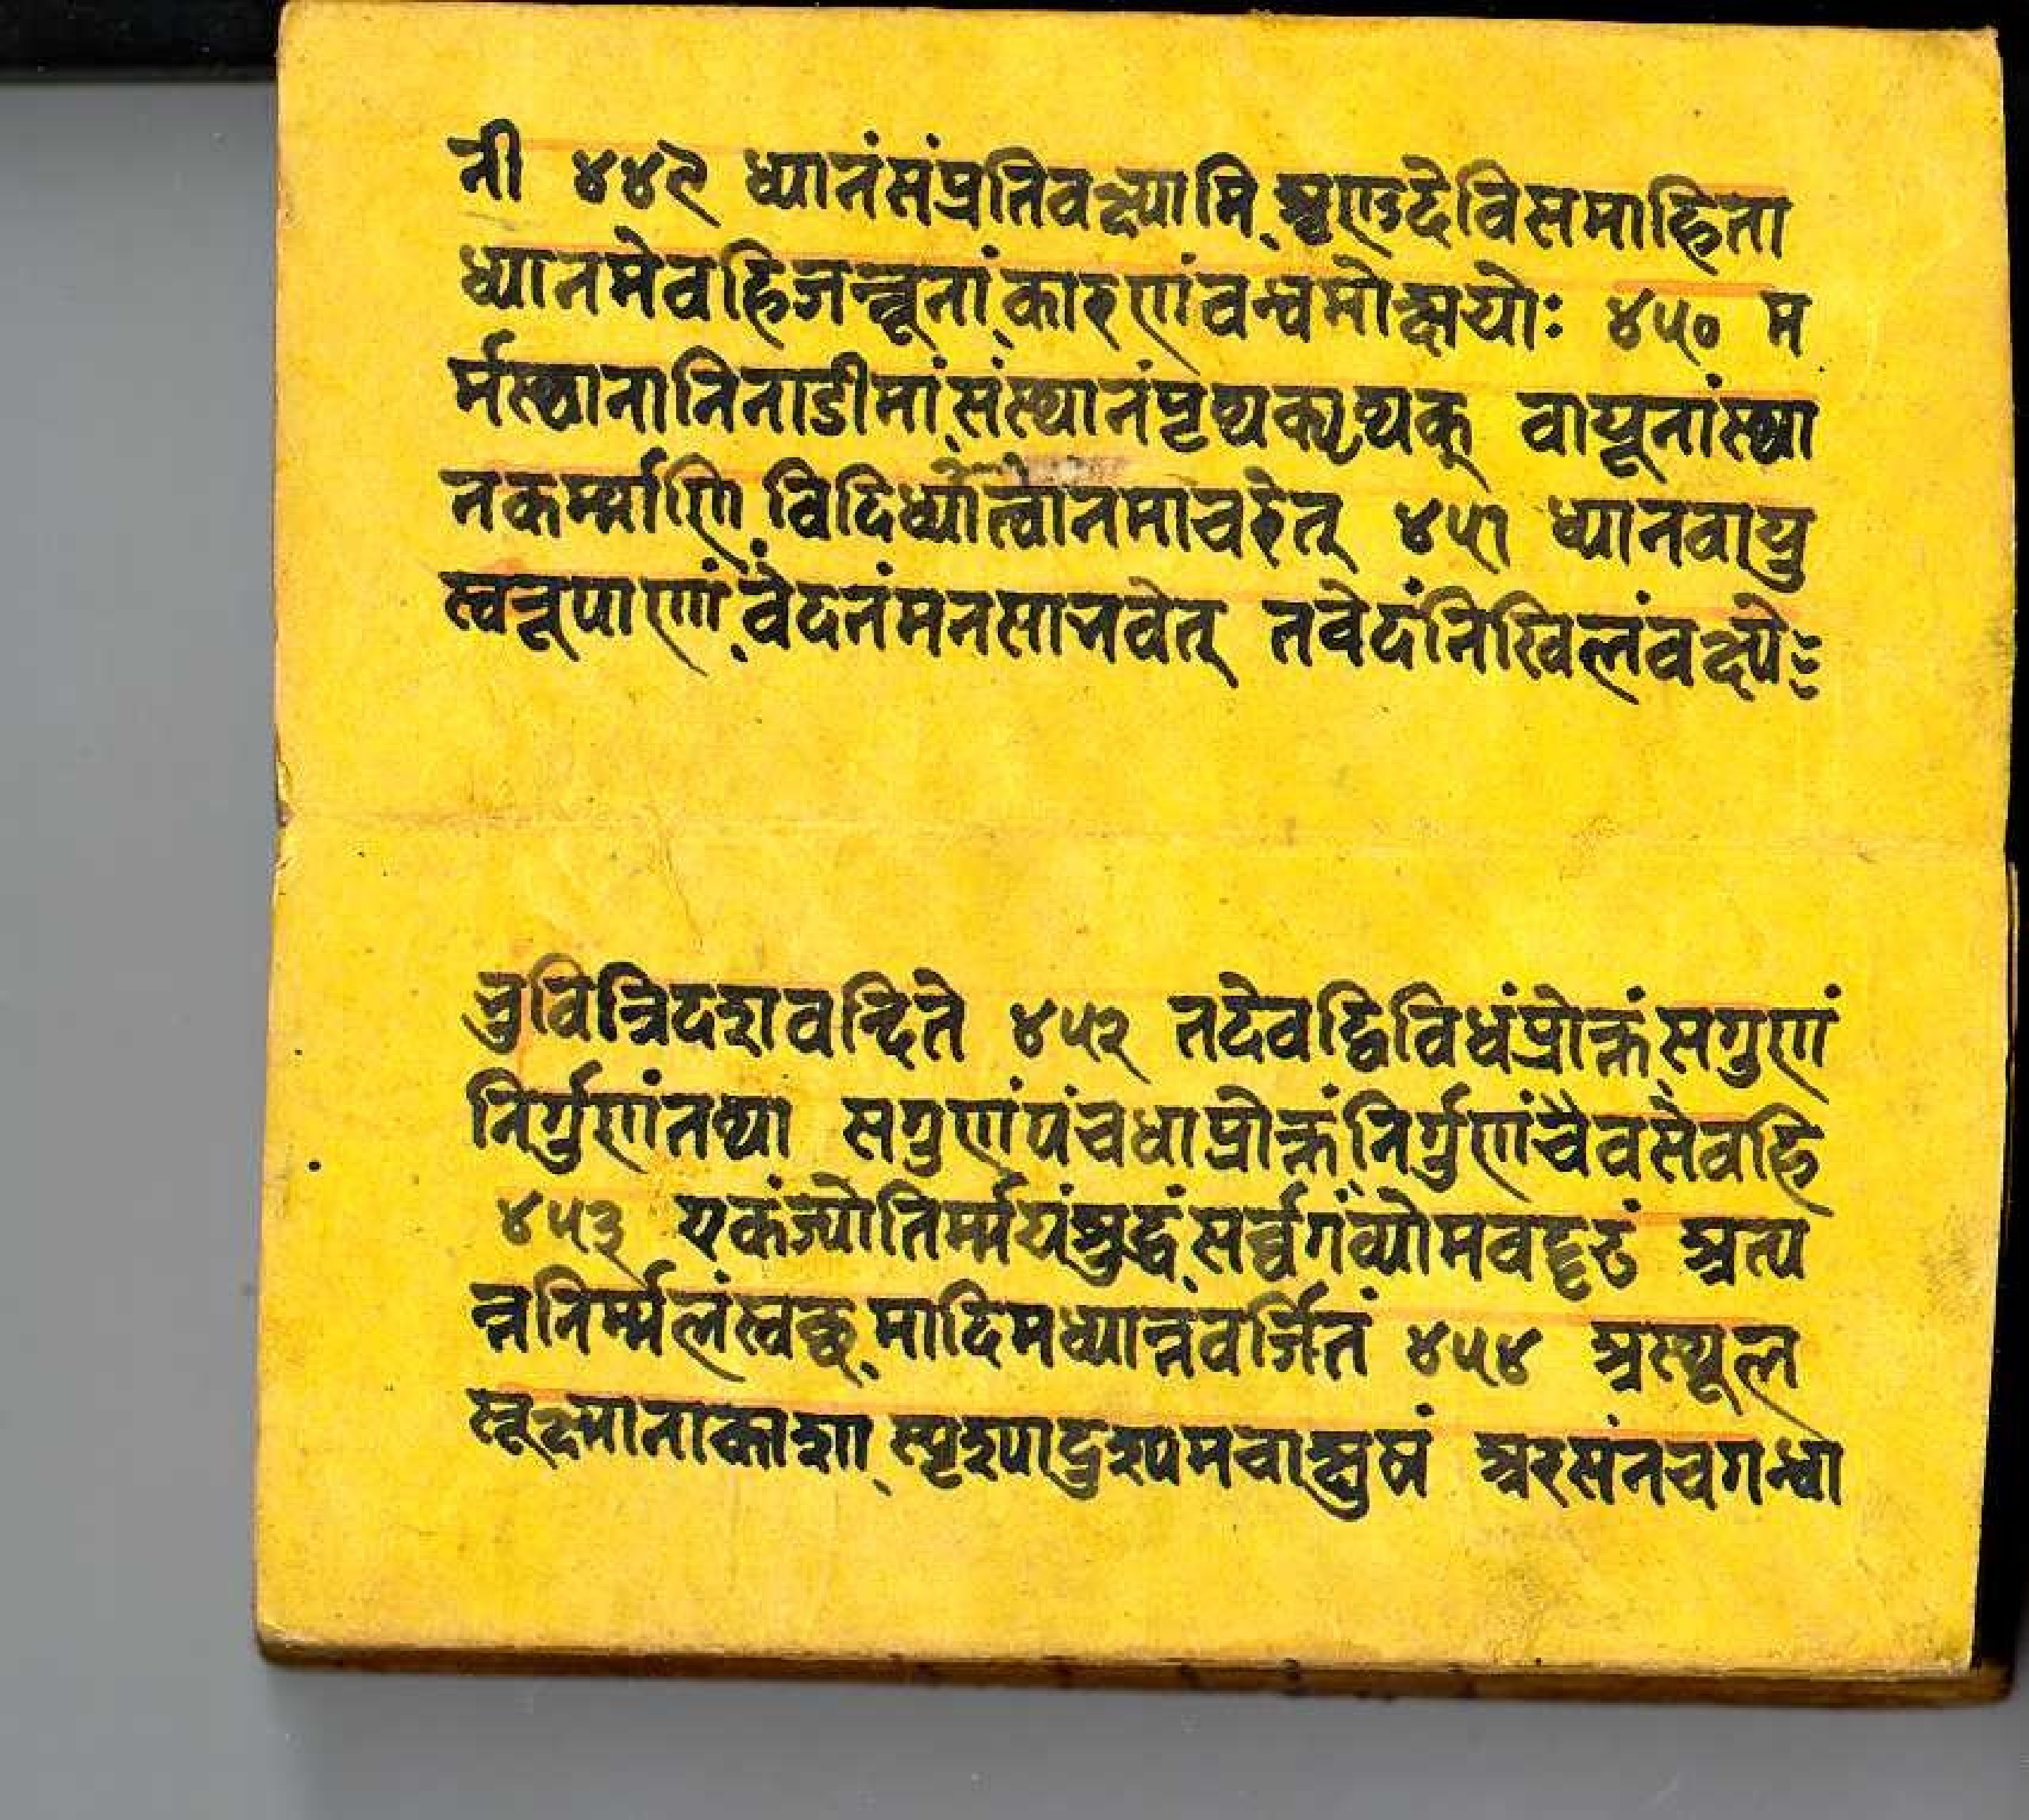 नी ४४९ ध्यानंसंप्रतिवक्ष्यामि शृणुदेविसमाहिता
ध्यानमेवहिजन्तूनां कारणंवन्धमोक्षयोः ४५० म
र्मस्थानानिनाडीनां संस्थानंपृथक्पृथक् वायूनांस्था
नकर्म्माणि विदिध्यात्वानमाचरेत् ४५१ ध्यानवायु
स्वरूपाणां वेदनंमनसाभवेत् तवेदंनिखिलंवक्ष्ये
भुवित्रिदशवन्दिते ४५२ तदेवद्विविधंप्रोक्तं सगुणं
निर्गुणंतथा सगुणंपंचधाप्रोक्तं निर्गुणंचैवसैवहि
४५३ एकंज्योतिर्म्मयंशुद्धं सर्व्वगंव्योमवद्दृढं अत्य
न्ननिर्म्मलंस्वच्छ मादिमध्यान्नवर्जितं ४५४ अस्थूल
सूक्ष्मानाकाशा स्पृश्यादुश्यमचाक्षुषं अरसंनचगन्धा